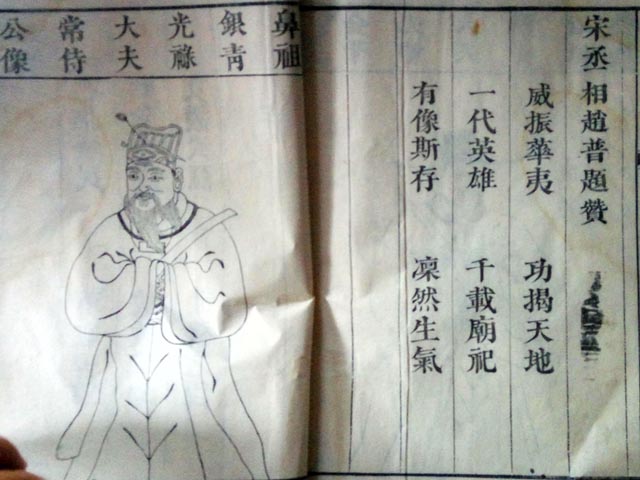 宋丞相趙普題贊
威振華夷 功揭天地
一代英雄 千載廟祀
有像斯存 凜然生氣
鼻祖
銀青
光祿
大夫
常侍
公像